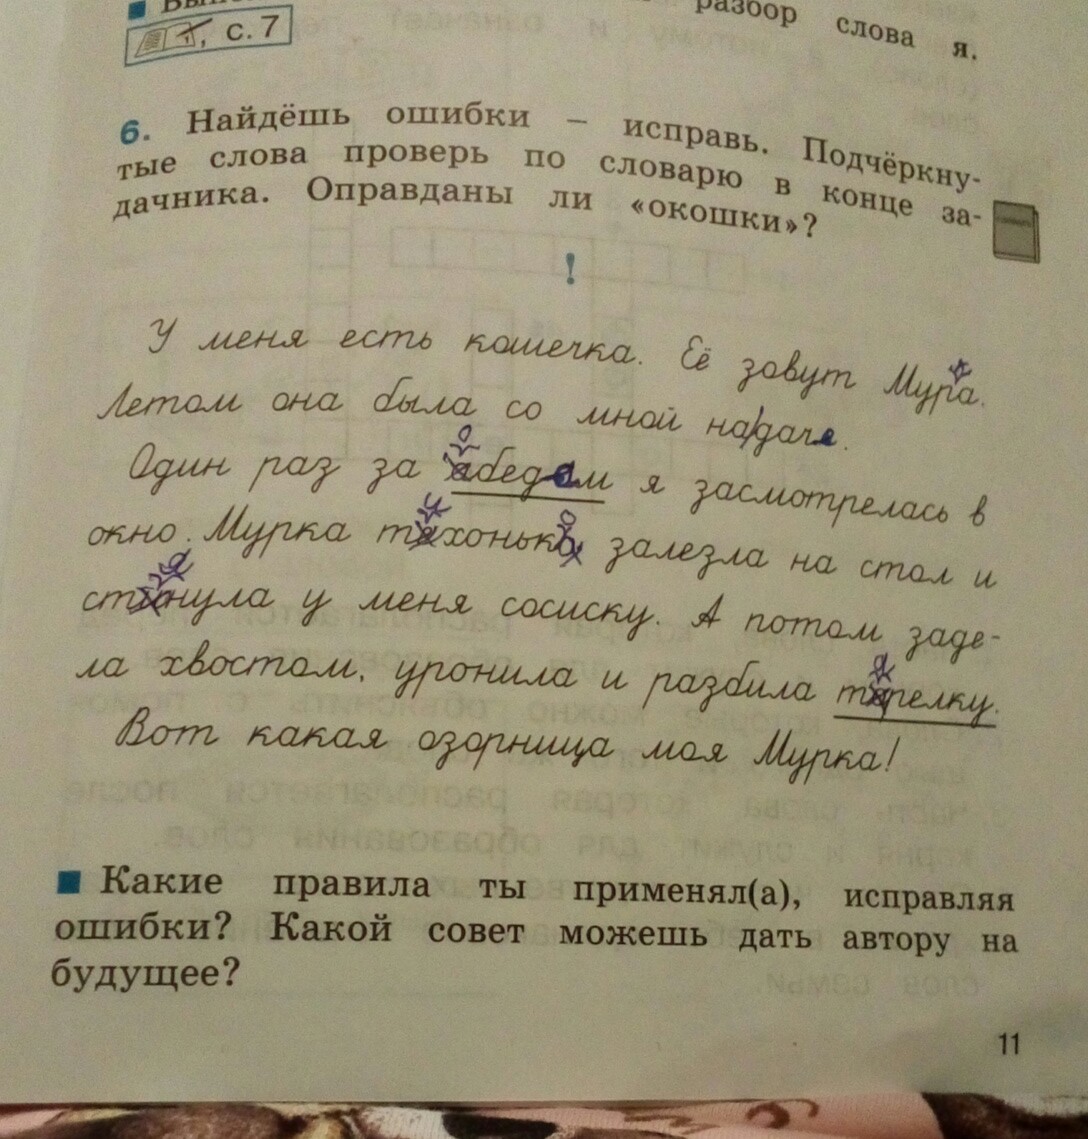 разбор слова я.
, с. 7
6. Найдёшь ошибки – исправь. Подчёркну-
тые слова проверь по словарю в конце за-
дачника. Оправданы ли «окошки»?
!
У меня есть кошечка. Её зовут Мура.
к
Летом она была со мной на/даче.
о
Один раз за абедом я засмотрелась в
и о
окно. Мурка тяхонька залезла на стол и
я
стинула у меня сосиску. А потом заде-
а
ла хвостом, уронила и разбила тарелку.
Вот какая озорница моя Мурка!
Какие правила ты применял(а), исправляя
ошибки? Какой совет можешь дать автору на
будущее?
11